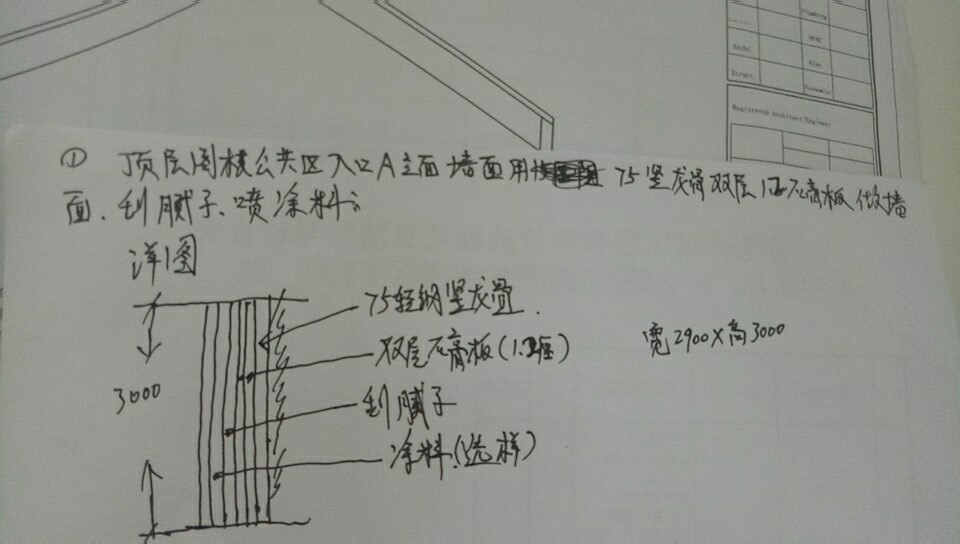 Archi.
Elec.
HVAC
Struct.
Economic
Registered Architect/Engineer
① 顶层阁楼公共区入口A立面墙面用 75竖龙骨双层1.2石膏板做墙
面、刮腻子、喷涂料;
详图
75轻钢竖龙骨.
双层石膏板(1.2厘)
宽2900X高3000
3000
刮腻子
涂料(选样)